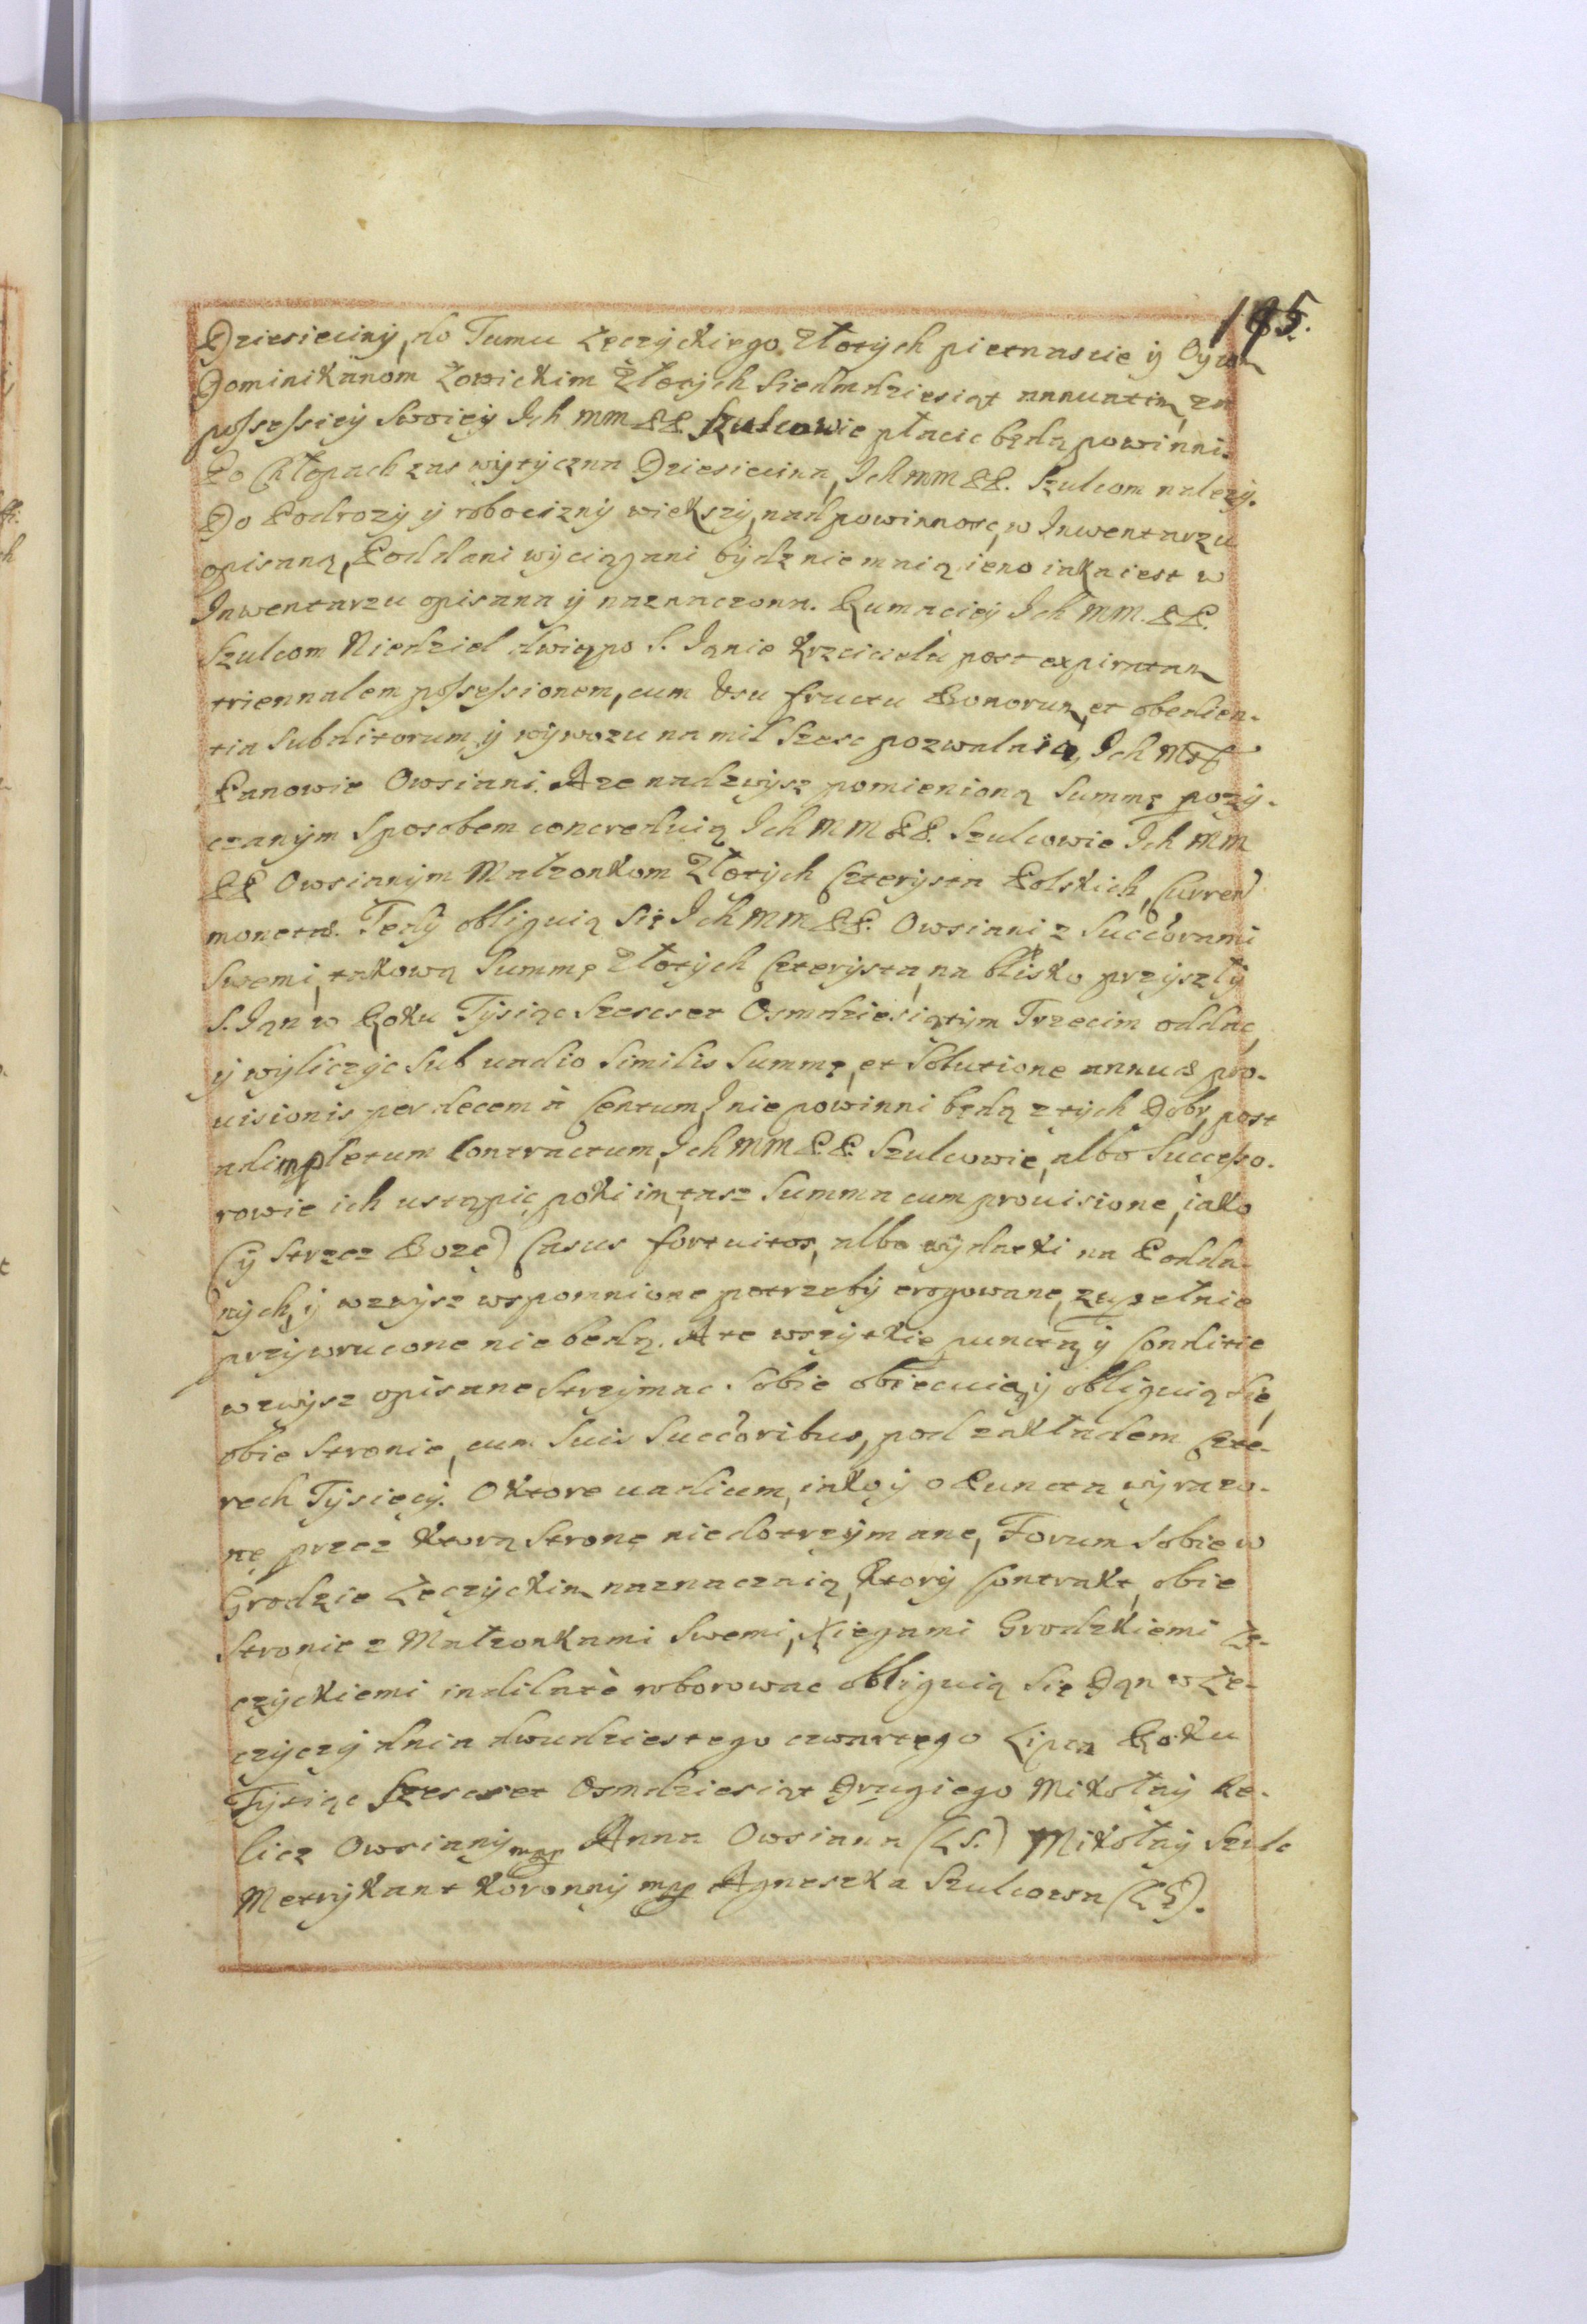 185.
Dziesieciny, do Tumu Łęczyckiego Złotych pietnascie ÿ Oycō
Dominikanom Łowickim Złotych Siedmdziesiąt annuatim za
possessiey Swoiey Ich MM PP. Szulcowie płacic będą powinni.
Po Chłopach zas wytyczna Dziesiecina, Ich MM PP. Szulcom nalezy.
Do Podrozy ÿ robocizny wiekszy, nad powinnosc, w Inwentarzu
opisaną, Poddani wyciągani bydz nie maią ieno iaka iest w
Inwentarzu opisana ÿ naznaczona. Rumaciey Ich MM. PP.
Szulcom Niedziel dwie po S. Janie Krzcicielu post expiratam
triennalem possessionem, cum Usu fructu Bonorum, et obedien-
tia Subditorum, ÿ wywozu na mil Szesc pozwalaią, Ich Mść
Panowie Owsiani. A ze nadzwysz pomienioną Summę pozy-
czanym Sposobem concreduią Ich MM PP. Szulcowie Ich MM
PP Owsianym Małzonkom Złotych Czterysta Polskich, Curren
monetæ. Tedy obliguią Się Ich MM PP. Owsiani, z Succorami
Swemi, takową Summę Złotych Czterysta, na blisko przyszły
S. Jąn w Roku Tysiąc Szescset Osmdziesiątym Trzecim oddac,
ÿ wyliczyc Sub uadio Similis Summę, et Solutione annuæ pro-
uisionis per decem à Centum, I nie powinni będą z tych Dobr, post
adimpletum Contractum, Ich MM P.P. Szulcowie, albo Successo-
rowie ich ustąpic, poki im tasz Summa cum prouisione, iako
(ÿ Strzez Boze) Casus fortuitos, albo wydatki na Podda-
nych, ÿ wzwysz wspomnione potrzeby erogowane, zupełnie
przywrucone nie bedą. A te wszytkie puncta, ÿ Conditie
wzwysz opisane Strzymac Sobie obiecuią, ÿ obliguią Się,
obie Stronie, cum Suis Succoribus, pod zakładem Czte-
rech Tysięcy. O ktore uadium, iako ÿ o Puncta wyrazo-
ne przez ktorą Strone niedotrzymane, Forum Sobie w
Grodzie Łęczyckim naznaczaią, ktory Contrakt, obie
Stronie z Małzonkami Swemi, Xięgami Grodzkiemi Łe-
czyckiemi indilatè roborowac obliguią Się Dąn w Łe-
czyczy dnia dwudziestego czwartego Lipca Roku
Tysiąc Szescset Osmdziesiąt Drugiego Mikołay Be-
licz Owsiany mpp Anna Owsiana (LS.) Mikołay Szulc
Metrykant Koronny mpp Agneszka Szulcowa (LS).